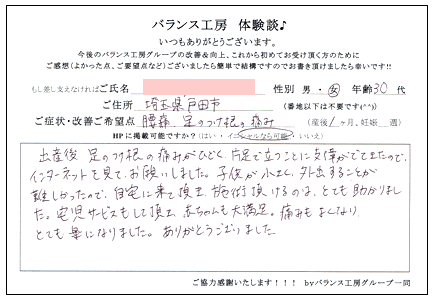 バランス工房 体験談♪
いつもありがとうございます。
今後のバランス工房グループの改善&向上、これから初めてお受け頂く方のために
ご感想(よかった点、ご要望点など)ございましたら簡単で結構ですのでお書き頂けましたら幸いです!!
もし差し支えなければご氏名 性別 男・女 年齢30代
ご住所 埼玉県戸田市 (番地以下は不要です(^^))
ご症状・改善ご希望点 腰痛 足のつけ根の痛み (産後1ヶ月、妊娠 週)
HPに掲載可能ですか?(はい・イニシャルなら可能・いいえ)
出産後 足のつけ根の痛みがひどく、片足で立つことに支障がでてきたので、
インターネットを見て、お願いしました。子供が小さく、外出することが
難しかったので、自宅に来て頂き 施術頂けるのは、とても助かりまし
た。託児サービスもして頂き、赤ちゃんも大満足。痛みもなくなり
とても楽になりました。ありがとうございました
ご協力感謝いたします!!! byバランス工房グループ一同